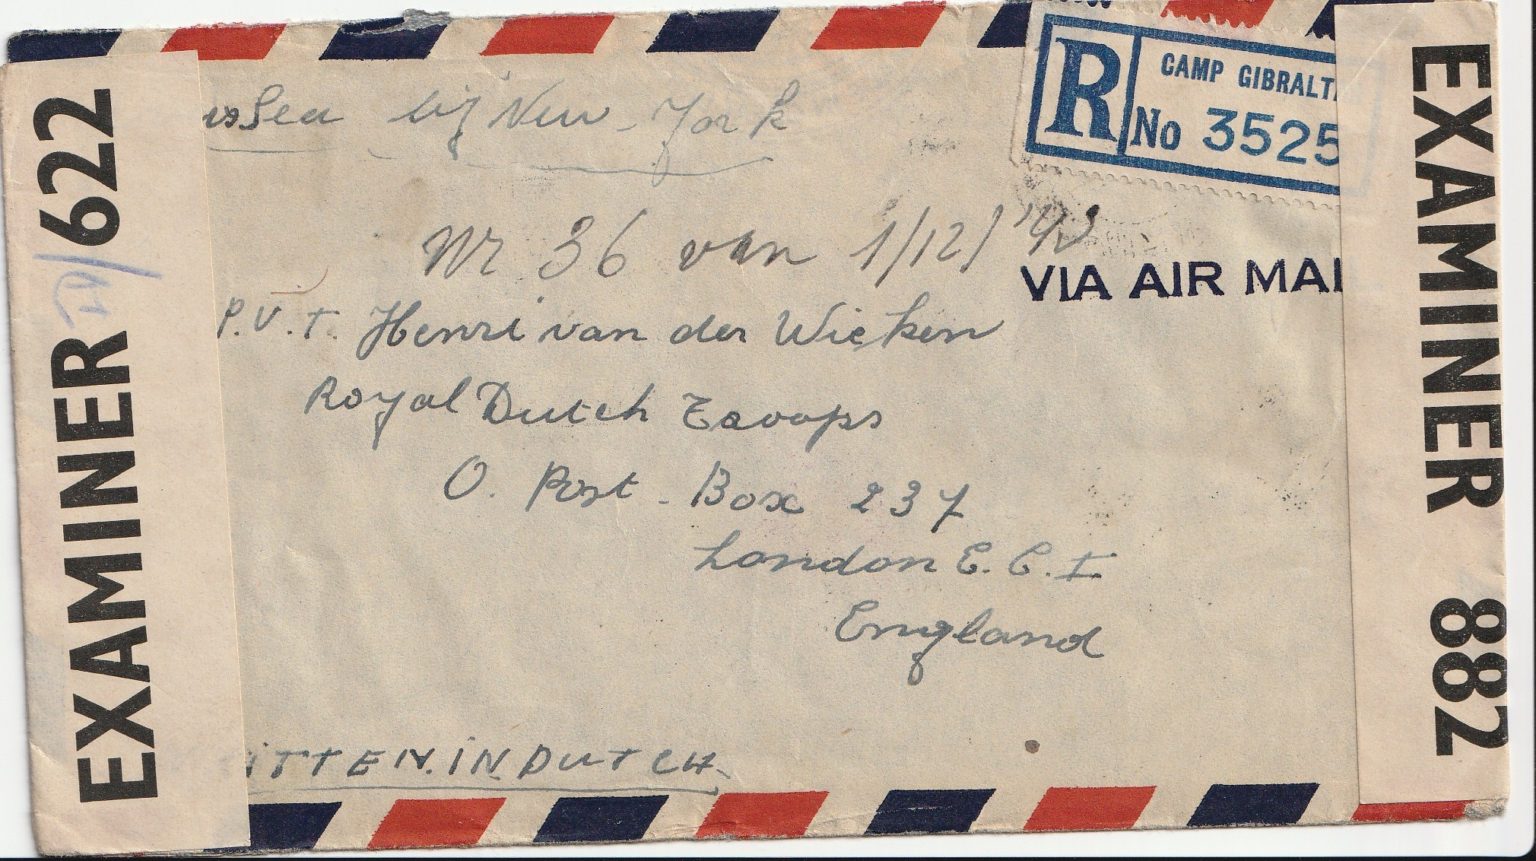 EXAMINER 622
bij New-York
R CAMP GIBRALT
No 3525
Nr 36 van 1/12/'43
VIA AIR MAI
P.V.T. Henri van der Wieken
Royal Dutch Troops
O. Post-Box 237
London E.C.I
England
ITTEN.IN.DUTCH.
EXAMINER 882